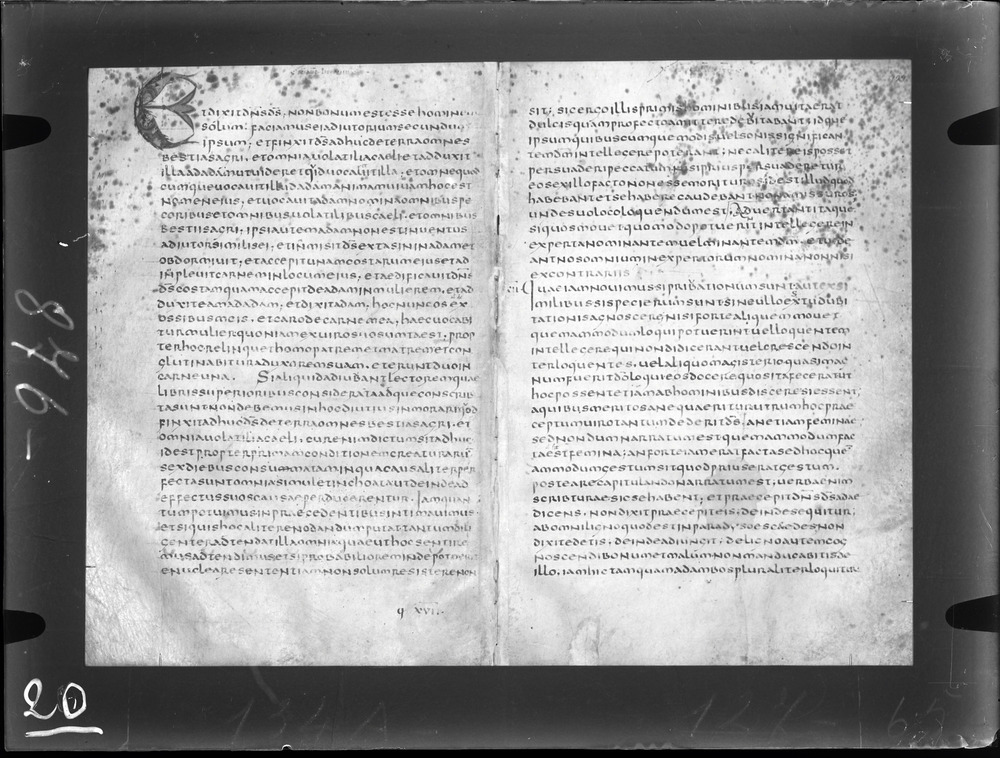 Et dixit dns ds, non bonum est esse hominem
solum; faciamus ei adiutorium secundum
ipsum; et finxit ds adhuc de terra omnes
bestias agri, et omnia volatilia caeli et adduxit
illa ad adam ut videret quid vocavit illa; et omne quod
cumque vocavit illud adam animam vivam hoc est
nomen eius, et vocavit adam nomina omnibus pe
coribus et omnibus volatilibus caeli, et omnibus
bestiis agri, ipsi autem adam non est inventus
adiutor similis ei; et inmisit ds extasin in adam et
obdormivit, et accepit unam costarum eius et ad
inplevit carnem in locum eius, et aedificavit dns
ds costam quam accepit de adam in mulierem, et ad
duxit eam ad adam, et dixit adam, hoc nunc os ex
ossibus meis, et caro de carne mea, haec vocabi
tur mulier quoniam ex viro suo sumta est, prop
ter hoc relinquet homo patrem et matrem et con
glutinabitur ad uxorem suam, et erunt duo in
carne una. Si aliquid adiubant lectorem quae
libris superioribus considerata adque conscrib
ta sunt non debemus in hoc diutius inmorari quod
finxit adhuc ds de terra omnes bestias agri, et
omnia volatilia caeli, cur enim dictum sit adhuc
id est propter primam conditionem creaturarum
sex diebus consummatam in qua causaliter per
fecta sunt omnia simul et inchoata ut deinde ad
effectus suos causae perducerentur. Iam quan
tum potuimus in praecedentibus intimavimus
et si quis hoc aliter enodandum putat tantum dili
genter adtendat illa omnia quae ut hoc sentire
mus adtendimus et si probabiliorem inde potuerit
enucleare sententiam non solum resistere non
q xvi.
sit; sic ergo illis primis hominibus iam vita erat
dulcis quam profecto amittere devitabant idque
ipsum quibuscumque modis vel sonis significan
tem dm intellegere poterant; nec aliter eis posset
persuaderi peccatum nisi prius persuaderetur
eos ex illo facto non esse morituros id est illud quod
habebant et se habere gaudebant non amissuros
unde suo loco loquendum est. Advertant itaque
si quos movet quomodo potuerint intellegere in
experta nominantem vel minantem dm et vide
ant nos omnium inexpertorum nomina non nisi
ex contrariis
quae iam novimus si privationum sunt aut ex si
milibus si specierum sunt sine ullo extu dubi
tationis agnoscere nisi forte aliquem movet
quemammodum loqui potuerint vel loquentem
intellegere qui non didicerant vel crescendo in
ter loquentes, vel aliquo magisterio quasi mag
num fuerit do loqui eos docere quos ita fecerat ut
hoc possent etiam ab hominibus discere si essent
a quibus merito sane quaeritur utrum hoc prae
ceptum viro tantum dederit ds, an etiam feminae
sed nondum narratum est quemammodum fac
ta est femina; an forte iam erat facta sed hoc que
ammodum gestum sit quod prius erat gestum.
postea recapitulando narratum est, verba enim
scribturae sic se habent; et praecepit dns ds adae
dicens, non dixit praecepit eis, deinde sequitur,
ab omni ligno quod est in parad, so escae edes non
dixit edetis, deinde adiungit; de ligno autem cog
noscendi bonum et malum non manducabitis de
illo, iam hic tamquam ad ambos pluraliter loquitur